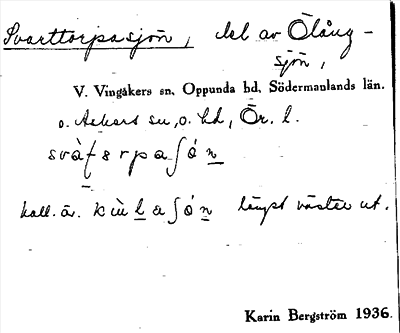 Svarttorpasjön, del av Ölång-
sjön,
V. Vingåkers sn, Oppunda hd, Södermanlands län.
o. Askers sn, o. hd, Ör. l.
kall. äv. längst väster ut.
Karin Bergström 1936.